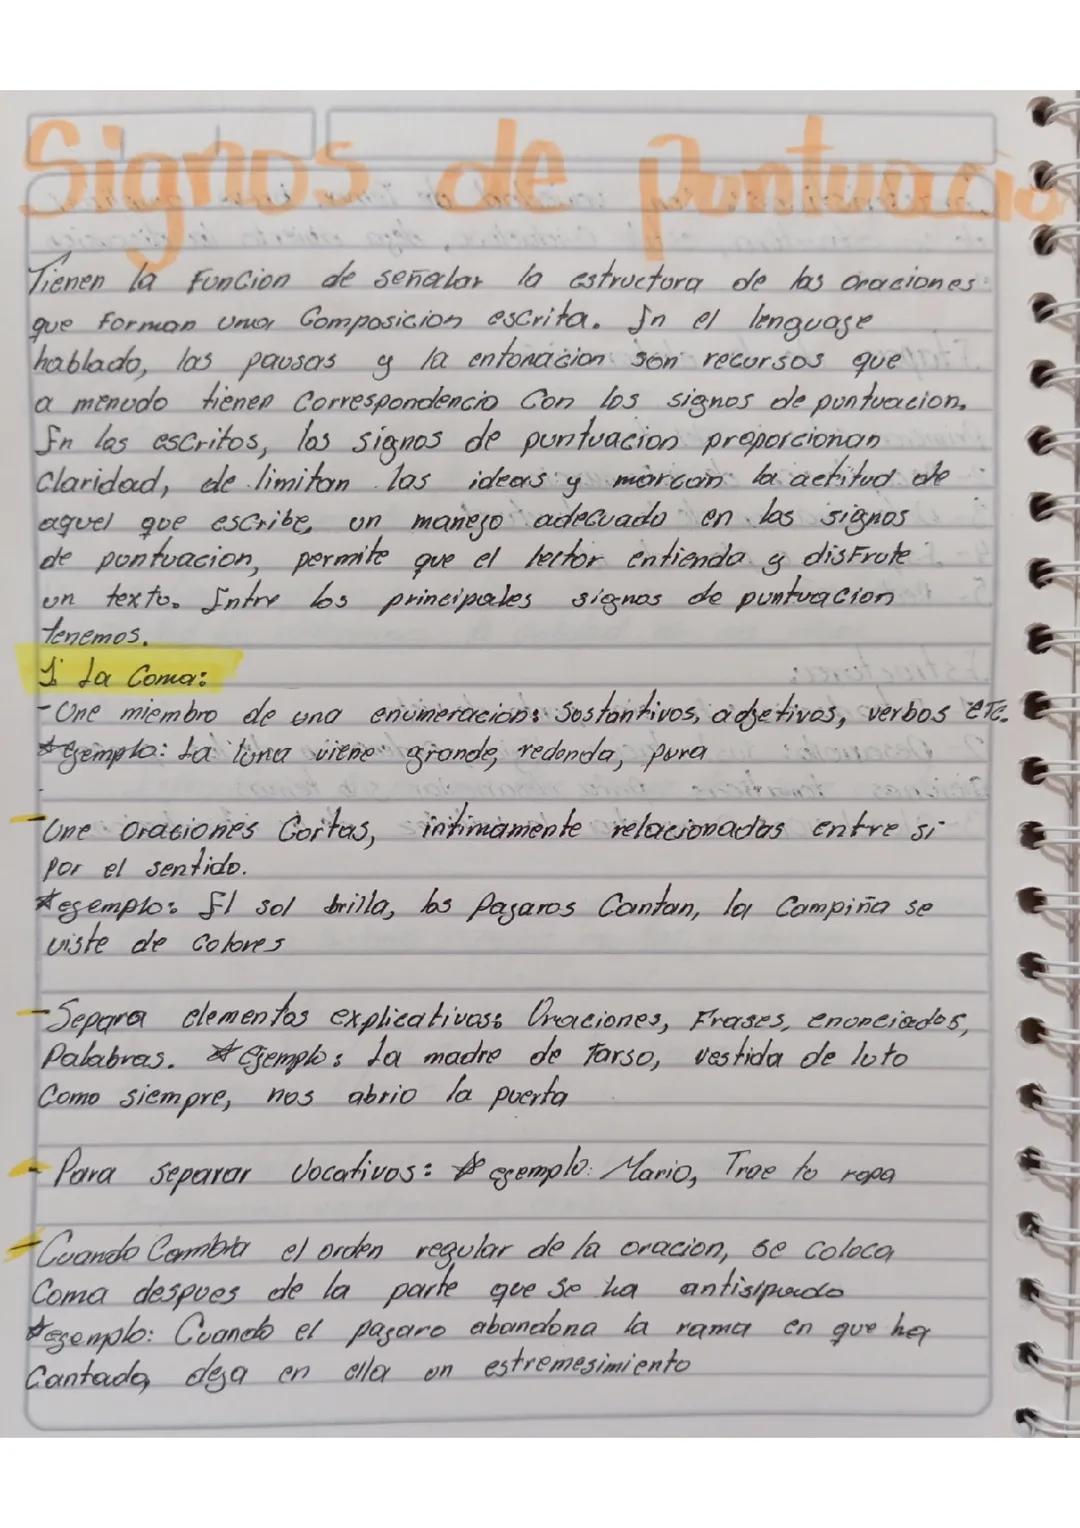 Signos de Puntuacio
Tienen la Funcion de señalar la estructura de las oraciones
que Forman una Composicion escrita. En el lenguaje
hablado, las pausas y la entonacion son recursos que
a menudo tienen Correspondencia Con los signos de puntuacion.
En los escritos, los signos de puntuacion proporcionan
Claridad, de limitan las ideas y marcan la actitud de
aquel que escribe, un manejo adecuado en los signos
de puntuacion, permite que el lector entienda y disFrute
un texto. Entre los principales signos de puntuacion
tenemos.
1. La Coma:
- Une miembro de una enumeracion: Sustantivos, adjetivos, verbos etc.
* ejemplo: La luna viene grande, redonda, pura
- Une oraciones Cortas, intimamente relacionadas entre si
por el sentido.
* ejemplo: El sol brilla, los Pajaros Cantan, la Campiña se
viste de Colores
- Separa elementos explicativos: Oraciones, Frases, enunciados,
Palabras. * Ejemplo: La madre de Tarso, vestida de luto
Como siempre, nos abrio la puerta
- Para separar Vocativos: * ejemplo: Mario, Trae tu ropa
- Cuando Cambia el orden regular de la oracion, se coloca
Coma despues de la parte que se ha antisipado
* ejemplo: Cuando el pajaro abandona la rama en que ha
Cantado, deja en ella un estremesimiento